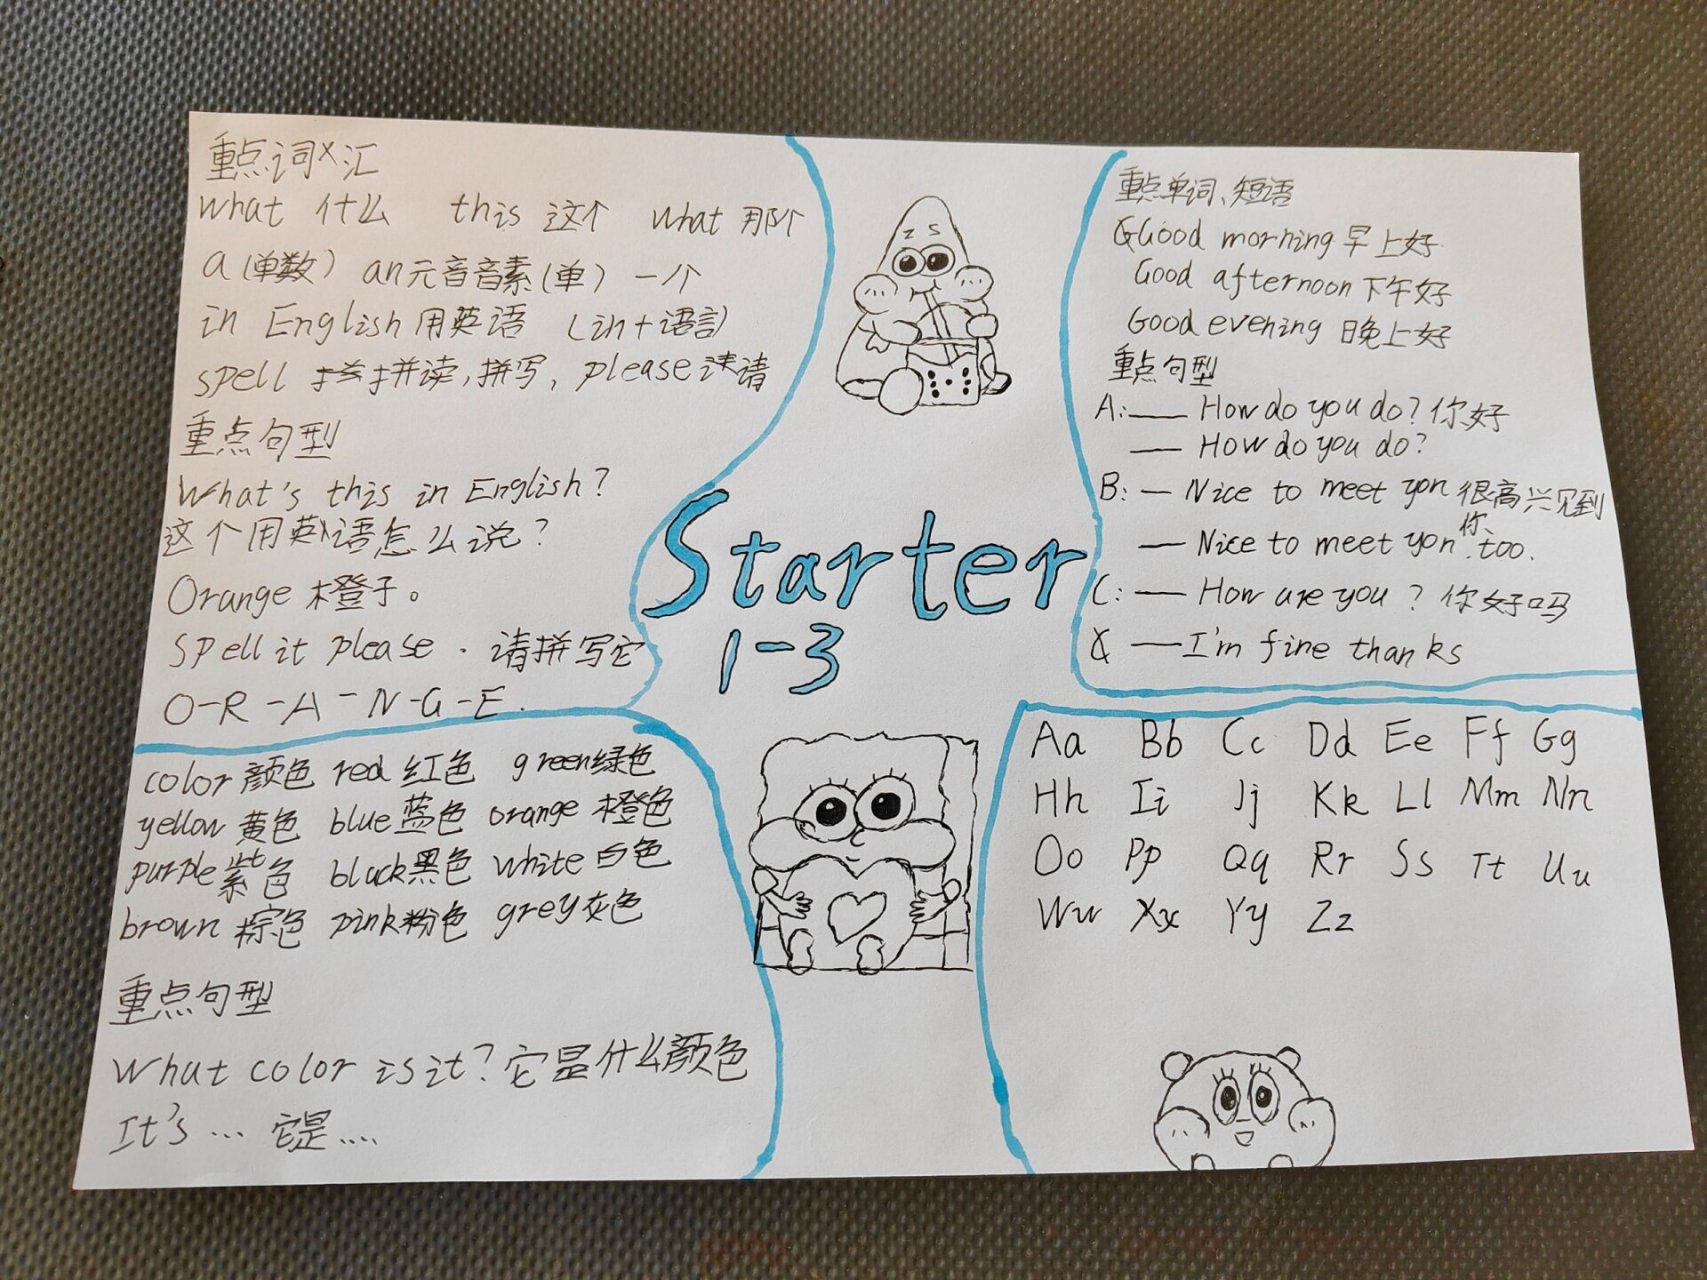 重点词汇
what 什么 this 这个 what 那个
a(单数) an元音音素(单) 一个
in English 用英语 (in+语言)
spell 拼读,拼写, please 请
重点句型
What's this in English?
这个用英语怎么说?
Orange 橙子。
Spell it please. 请拼写它
O-R-A-N-G-E.
Starter
1-3
Z S
重点单词、短语
Good morning 早上好
Good afternoon 下午好
Good evening 晚上好
重点句型
A:—— How do you do? 你好
—— How do you do?
B: — Nice to meet you 很高兴见到你.
— Nice to meet you too.
C: —— How are you? 你好吗
—— I'm fine thanks
color 颜色 red 红色 green 绿色
yellow 黄色 blue 蓝色 orange 橙色
purple 紫色 black 黑色 white 白色
brown 棕色 pink 粉色 grey 灰色
重点句型
What color is it? 它是什么颜色
It's ... 它是....
Aa Bb Cc Dd Ee Ff Gg
Hh Ii Jj Kk Ll Mm Nn
Oo Pp Qq Rr Ss Tt Uu
Ww Xx Yy Zz